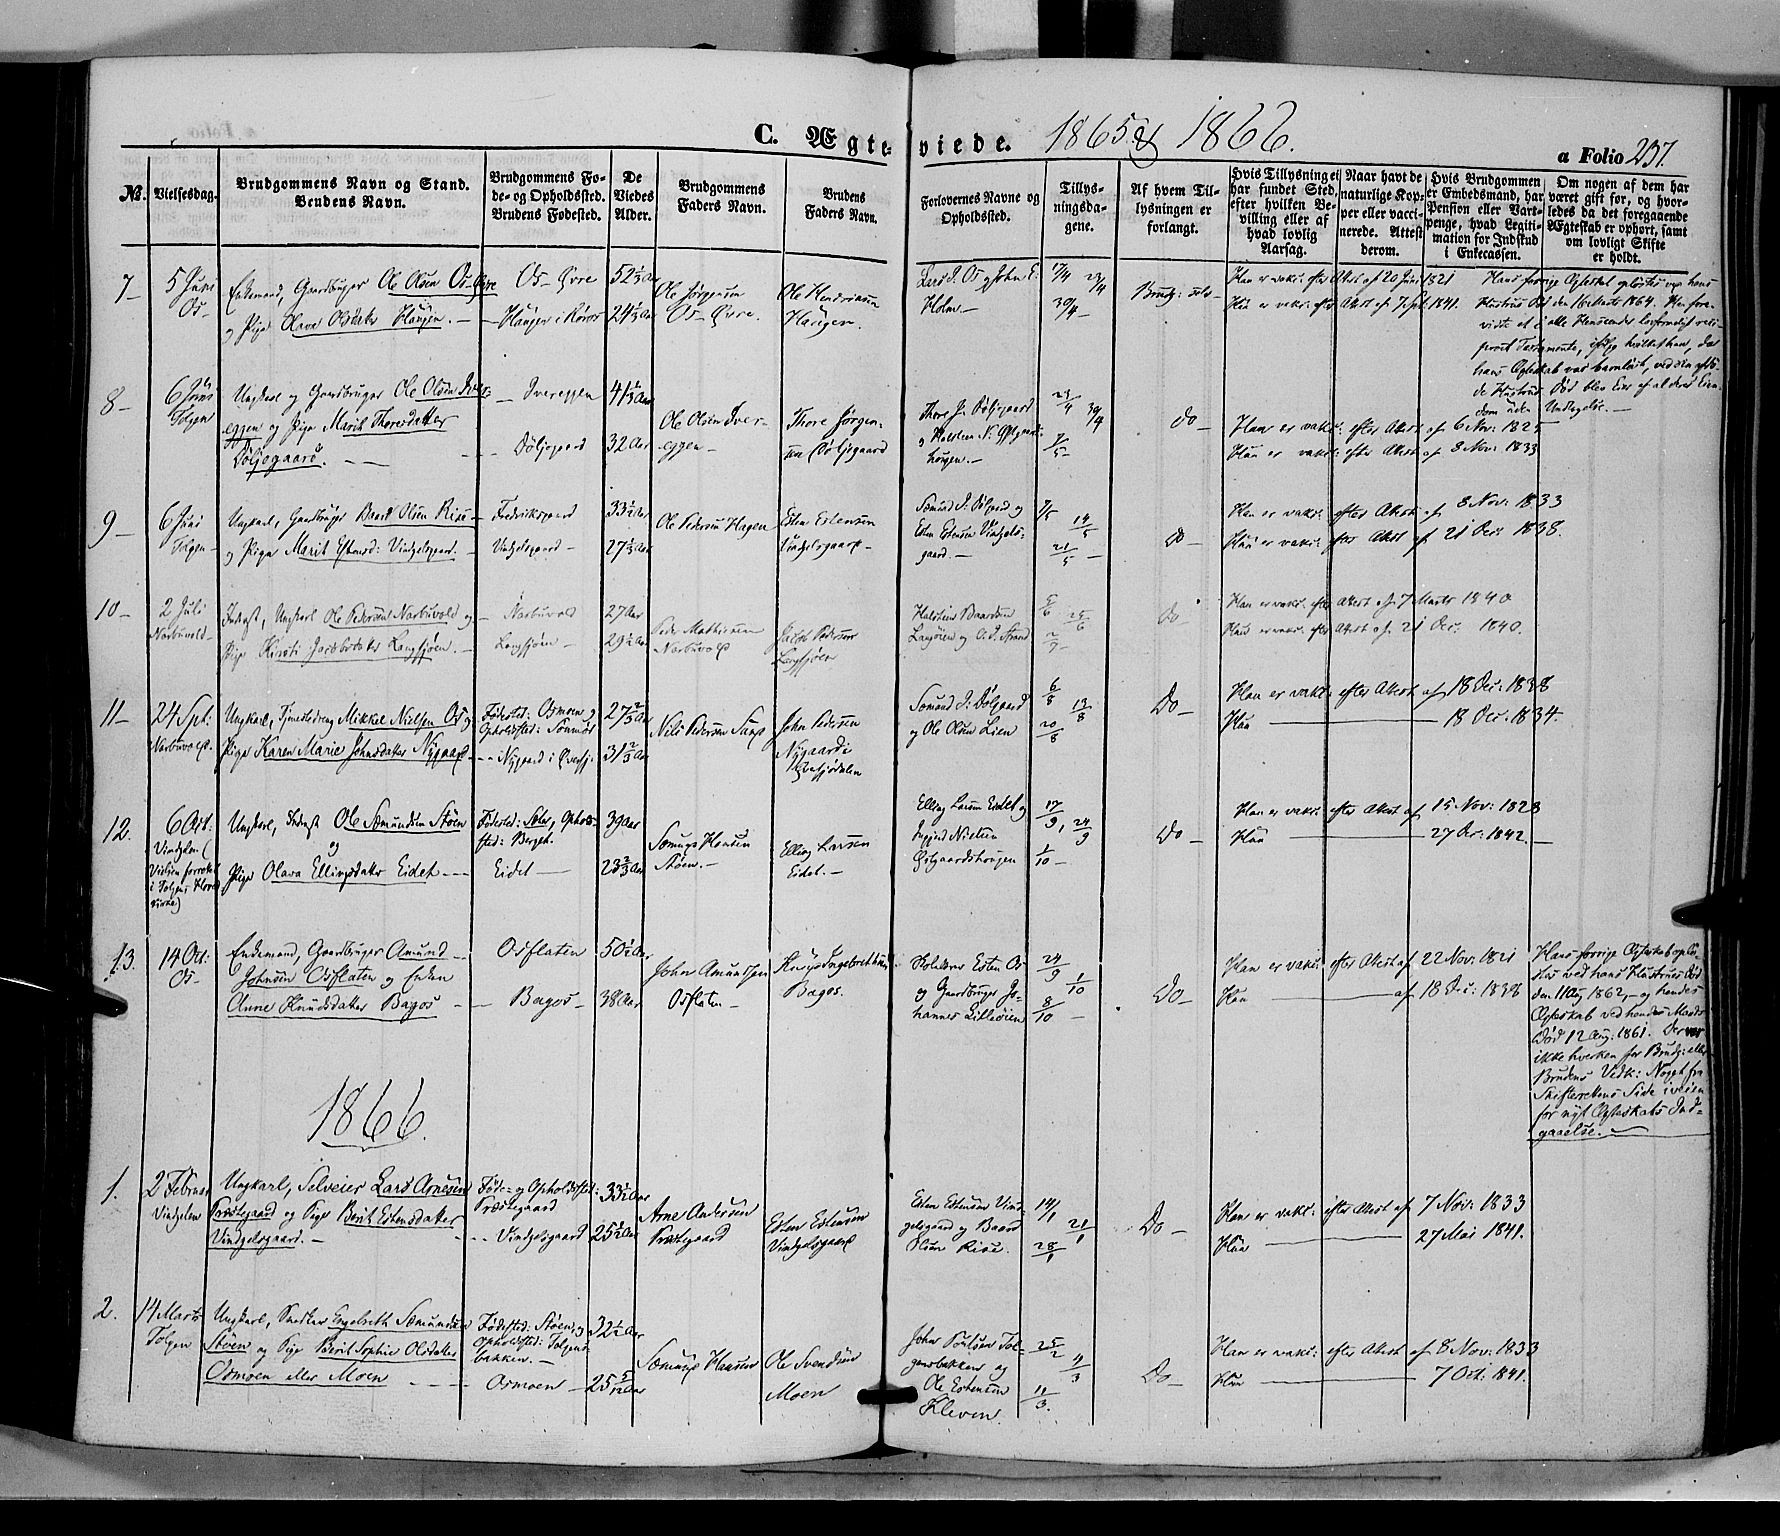 C. Ægte- viede. 1865 & 1866.
a Folio 257.
№.
Vielsesdag.
Brudgommens Navn og Stand.
Brudens Navn.
Brudgommens Fø-
de- og Opholdssted.
Brudens Fødested.
De
Viedes
Alder.
Brudgommens
Faders Navn.
Brudens
Faders Navn.
Forlovernes Navne og
Opholdssted.
Tillys-
ningsda-
gene.
Af hvem Til-
lysningen er
forlangt.
Hvis Tillysning ei
har fundet Sted,
efter hvilken Be-
villing eller af
hvad lovlig
Aarsag.
Naar havt de
naturlige Kop-
per eller vacci-
nerede. Attest
derom.
Hvis Brudgommen
er Embedsmand, har
Pension eller Vart-
penge, hvad Legiti-
mation for Indskud
i Enkecassen.
Om nogen af dem har
været gift før, og hvor-
ledes da det foregaaende
Ægteskab er ophørt, samt
om lovligt Skifte
er holdt.
7-
5 Juni
Os-
Enkemand, Gaardbruger Ole Olsen Os-Øvre
og Pige Olava Olsdatter Haugen. -
Os-Øvre
Haugen i Røros
52 1/2 Aar
24 1/2 Aar
Ole Jørgensen
Os-Øvre.
Ole Hendriksen
Haugen.
Lars J. Os og John E.
Holm. -
17/4 23/4
30/4 -
Brudg: selv -
Han er vakc: efter Attest af 20 Juni 1821
Hun er vakc: efter Attest af 7 Sept: 1841.
Hans forrige Ægteskab opløstes ved hans
Hustrues Død den 16 Marts 1864. Han fore-
viste et i alle Henseender lovformeligt reci-
procit Testamente, ifølge hvilket han, da
hans Ægteskab var barnløst, ved sin afdø-
de Hustrues Død blev Eier af al deres Eien-
dom uden Undtagelse. -
8-
6 Juni
Tolgen
Ungkarl og Gaardbruger Ole Olsen Iver-
eggen og Pige Marit Thoresdatter
Døljegaard. -
Ivereggen
Døljegaard
41 1/2 Aar
32 Aar
Ole Olsen Iver-
eggen -
Thore Jørgen-
sen Døljegaard
Thore J. Døljegaard
og Halsten N. Østgaards-
hougen. -
23/4 30/4
7/5 -
Do -
Han er vakc: efter Attest af 6 Nov: 1825
Hun er vakc: efter Attest af 8 Nov: 1833
9-
6 Juni
Tolgen -
Ungkarl, Gaardbruger Baard Olsen Riise -
og Pige Marit Estensd: Vindgelsgaard. -
Fredriksgaard
Vindgelsgaard -
33 1/2 Aar
27 1/2 Aar
Ole Pedersen Hagen
Esten Estensen
Vindgelsgaard -
Simund J. Dølgaard og
Esten Estensen Vindgels-
gaard. -
7/5 14/5
21/5 -
Do -
Han er vakc: efter Attest af 8 Nov: 1833
Hun er vakc: efter Attest af 21 Dec: 1838.
10-
2 Juli
Narbuvold -
Inderst, Ungkarl Ole Pedersen Narbuvold og -
Pige Kirsti Jacobsdatter Langsjøen. -
Narbuvold
Langsjøen -
27 Aar
29 1/2 Aar
Peder Mathiesen
Narbuvold
Jacob Pedersen
Langsjøen
Halsten Baardsen
Langøien og O. D. Strand
Do
Han er vakc: efter Attest af 7 Marts 1840
Hun er vakc: efter Attest af 21 Dec: 1840.
11-
24 Sept:
Narbuvold.
Ungkarl, Tjenestedreng Mikkel Nielsen Os og
Pige Karen Marie Johnsdatter Nygaard -
Fødested: Osmoen og
Opholdssted: Sømnær
Nygaard i Øversj:
27 2/3 Aar
31 2/3 Aar
Nils Pedersen Sand
John Pedersen
Nygaard i
Øversjødalen
Simund J: Dølgaard
og Ole Olsen Lien
6/8 13/8
20/8
Do -
Han er vakc: efter Attest af 18 Dec: 1838
Hun — 18 Dec: 1834.
12.
6 Oct:
Vindgelen (
Vielsen forrettet
i Tolgens Hoved-
kirke)
Ungkarl, Inderst Ole Simundsen Støen
og
Pige Olava Ellingsdatter Eidet - -
Fødested: Støen, Ophols-
sted: Bergst.
Eidet -
39 Aar
23 2/3 Aar
Simund Hansen
Støen. -
Elling Larsen
Eidet. -
Elling Larsen Eidet og
Ingjerd Nielsen
Østgaardshougen
17/9, 24/9
1/10 -
Do -
Han er vakc: efter Attest af 15 Nov: 1828
Hun — 27 Oct: 1842. -
13.
14 Oct:
Os -
Enkemand, Gaardbruger Amund
Johnsen Osflaten og Enken
Anne Knudsdatter Bagos -
Osflaten
Bagos -
50 1/2 Aar
38 Aar
John Amundsen
Osflaten -
Knud Ingebrethsen
Bagos.
Kirkesanger Esten Os
og Gaardbruger Jo-
hannes Lilleøien
24/9 1/10
8/10 -
Do -
Han er vakc: efter Attest af 22 Nov: 1821
Hun — af 18 Dec: 1838
Hans forrige Ægteskab oplø-
stes ved hans Hustrues Død
den 11 Aug 1862, - og hendes
Ægteskab ved hendes Mands
Død 12 Aug: 1861. Der var
ikke hverken for Brudg: eller
Brudens Vedk: Noget fra
Skifterettens Side i veien
for nyt Ægteskabs Ind-
gaaelse. -
1866.
1.
2 Februar
Vindgelen
Ungkarl, Selveier Lars Arnesen
Præstegaard og Pige Berit Estensdatter
Vindgelsgaard. -
Føde- og Opholdssted:
Præstegaard
Vindgelsgaard
33 1/2 Aar
25 1/2 Aar
Arne Andersen
Præstegaard
Esten Estensen
Vindgelsgaard
Esten Estensen Vind-
gelsgaard og Baard
Olsen Riise.
14/1 21/1
28/1
Do -
Han er vakc: efter Attest af 7 Nov: 1833
Hun — 27 Mai 1841.
2.
14 Marts
Tolgen
Ungkarl, Snedker Engebreth Simundsen
Støen og Pige Berit Sophie Olsdatter
Osmoen eller Moen - - -
Fødested: Støen, og
Opholdssted: Tolgens-
bakken. -
Osmoen -
32 1/2 Aar
25 5/12 Aar
Simund Hansen
Ole Svendsen
Moen
John Poulsen Tol-
gensbakken og
Ole Estensen
Kleven.
25/2 4/3
11/3.
Do -
Han er vakc: efter Attest af 8 Nov: 1833
Hun — 7 Oct: 1841.